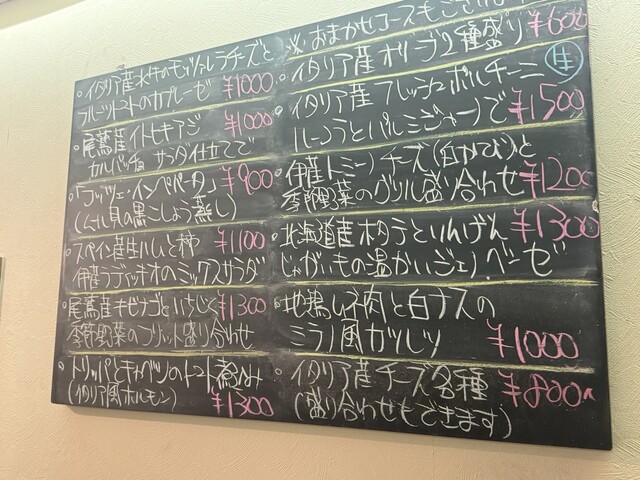 ・イタリア産水牛のモッツァレラチーズと
フルーツトマトのカプレーゼ ¥1000
・尾鷲産 イトヒキアジ ¥1000
カルパッチョ サラダ仕立てで
・「コッツェ・インペパータ」 ¥900
(ムール貝の黒こしょう蒸し)
・スペイン産生ハムと柿 ¥1100
伊産ラディッキオのミックスサラダ
・尾鷲産キビナゴといちじく ¥1300
季節野菜のフリット盛り合わせ
・トリッパとキャベツのトマト煮込み
(イタリア風ホルモン) ¥1300
※おまかせコースもござい
・イタリア産 オリーブ2種盛り ¥600
・イタリア産 フレッシュポルチーニ 生
ルーコラとパルミジャーノで ¥1500
・伊産トミーノチーズ(白かび)と
季節野菜のグリル盛り合わせ ¥1200
・北海道産ホタテといんげん ¥1300
じゃがいもの温かいジェノベーゼ
・地鶏ムネ肉と白ナスの
ミラノ風カツレツ ¥1000
・イタリア産チーズ各種 ¥800~
(盛り合わせもできます)